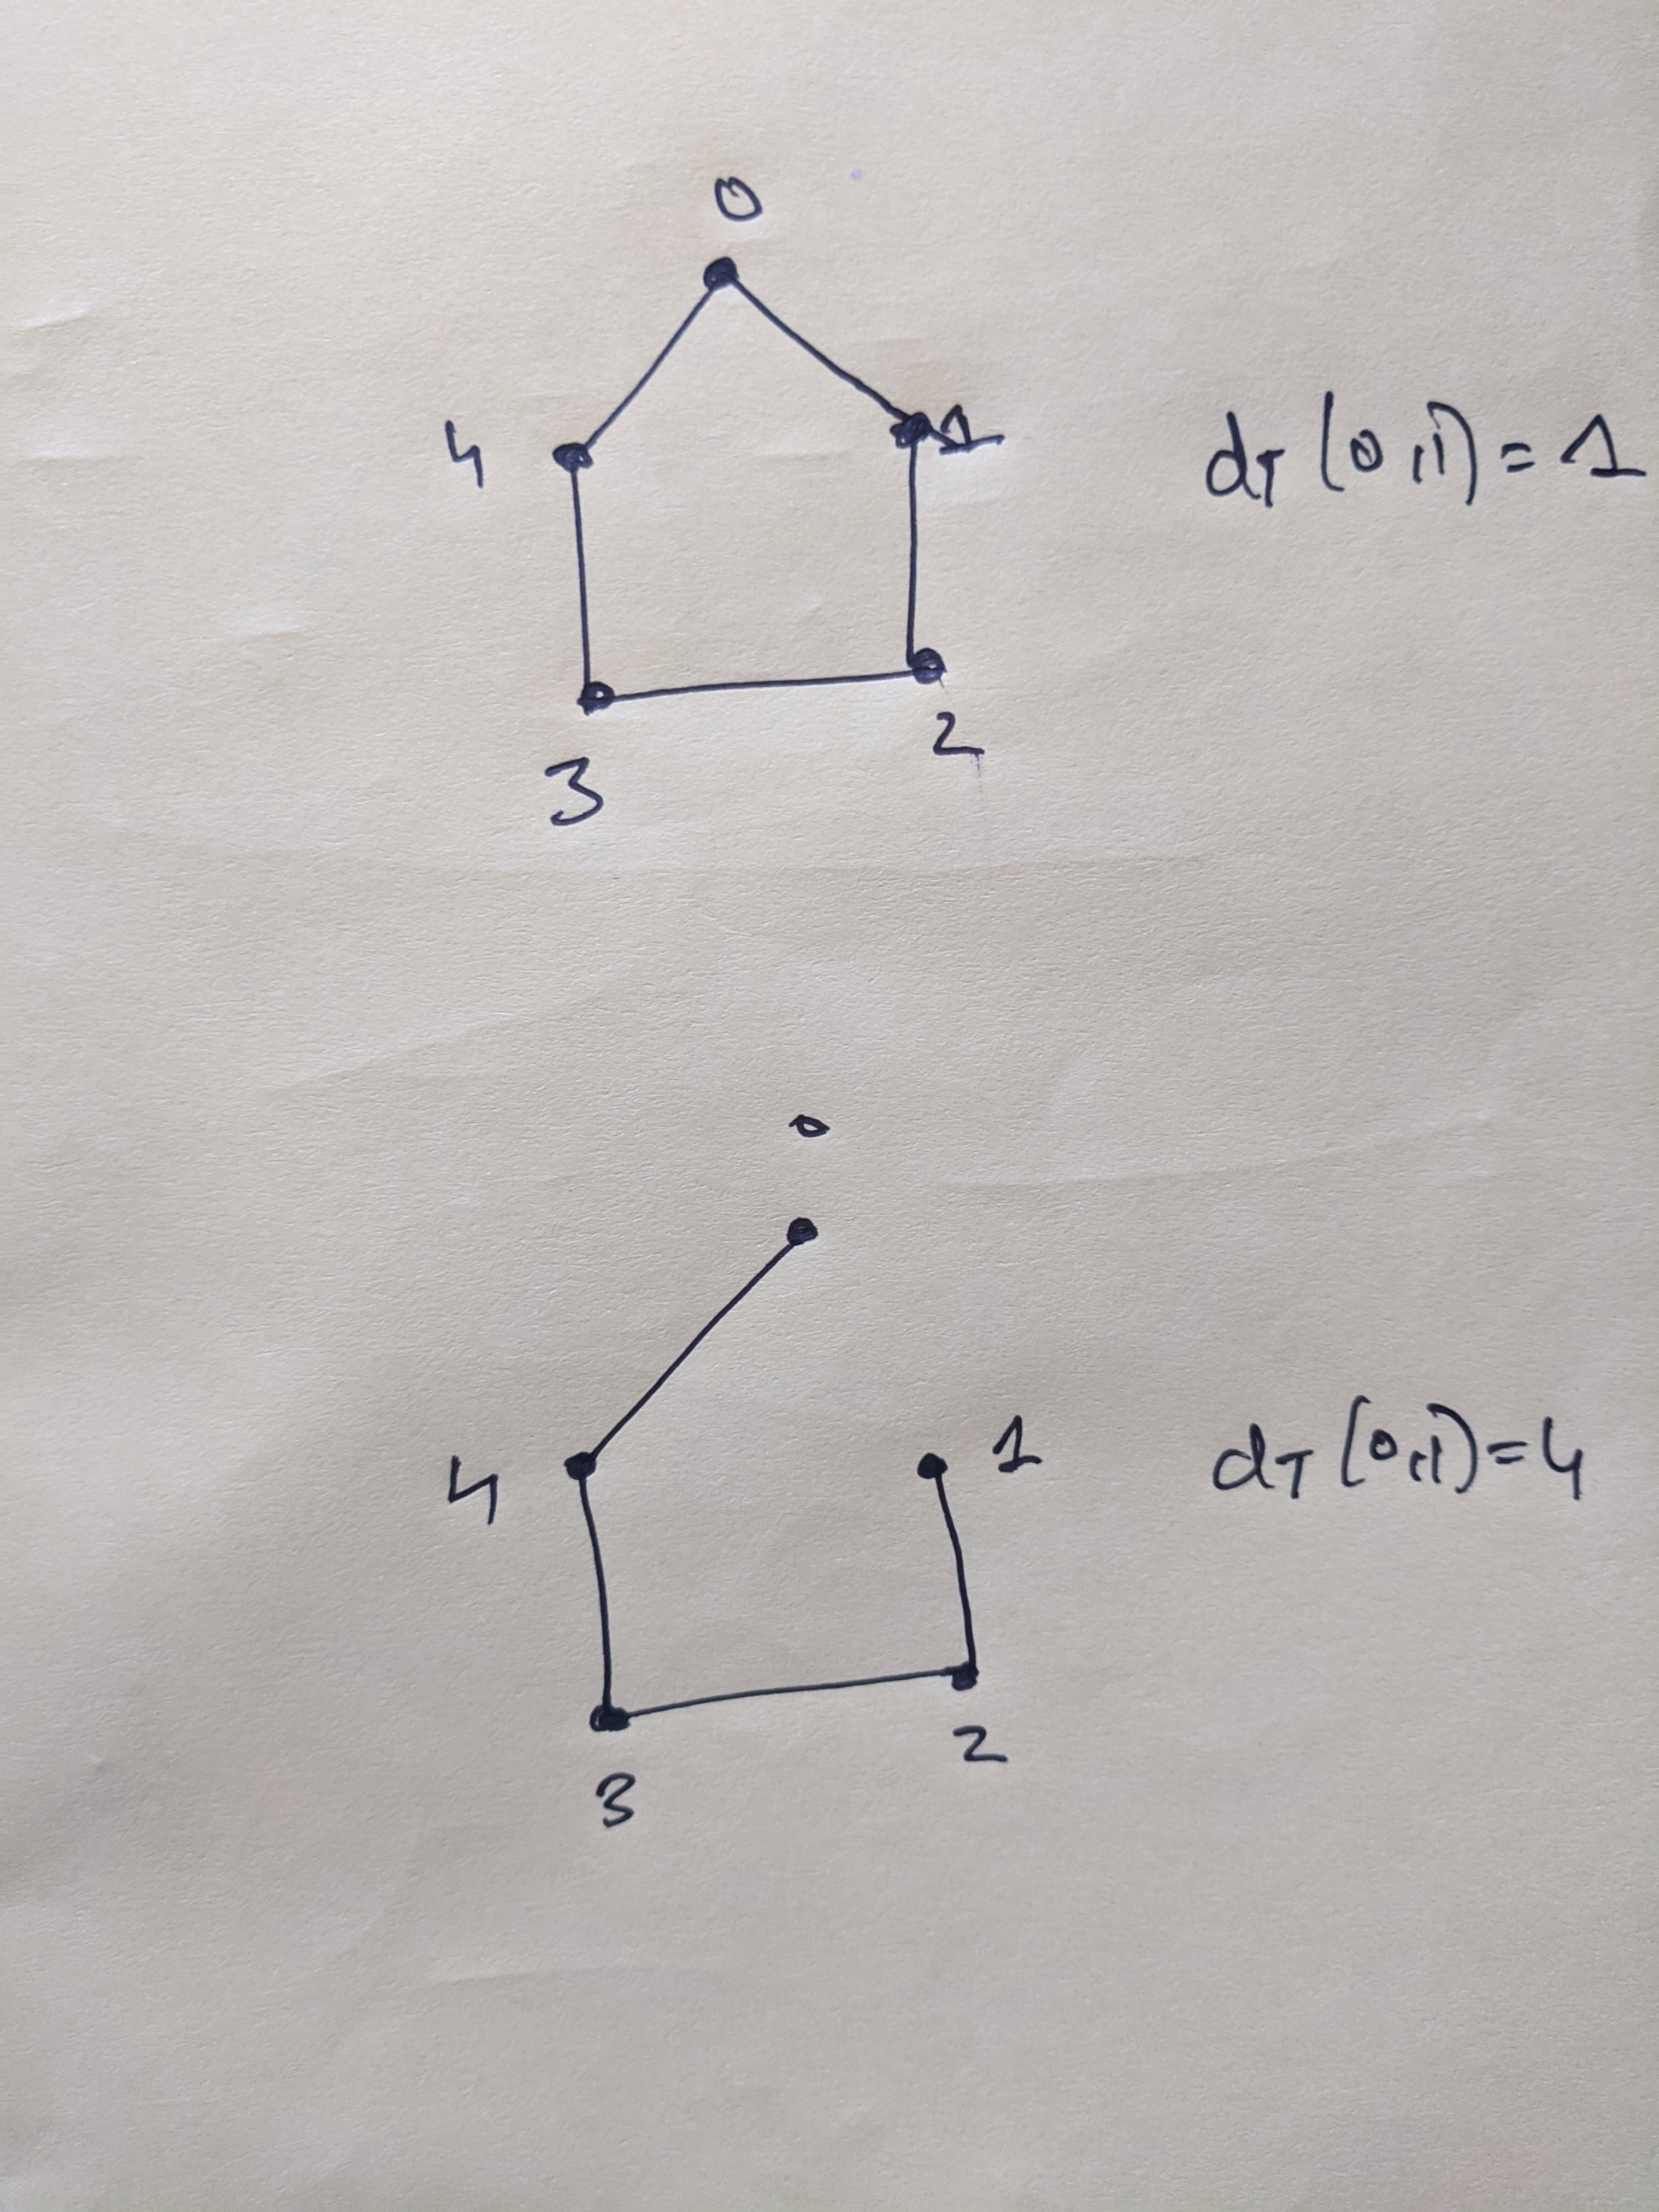 0
4 1 dT (0,1) = 1
2
3
0
4 1 dT (0,1) = 4
2
3